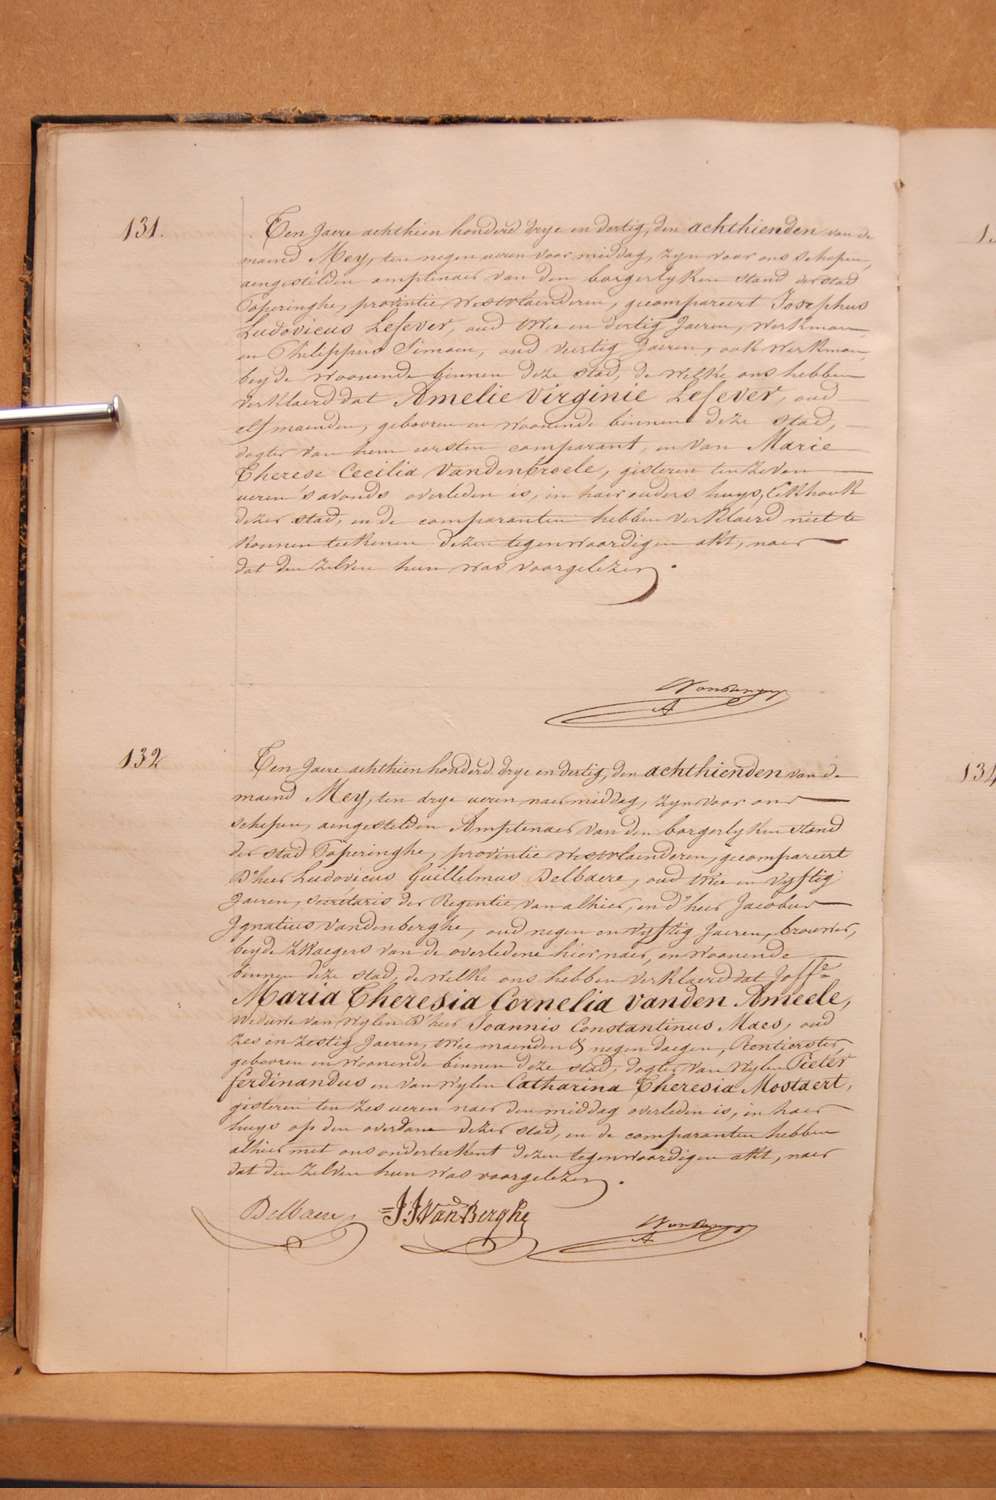 131.
Ten Jaere achthien honderd drye en dertig, den achthienden van de
maend Mey, ten negen ueren voor middag, zyn voor ons schepen,
aengestelden amptenaer van den borgerlyken stand der stad
Poperinghe, provintie Westvlaenderen, gecompareert Josephus
Ludovicus Lefever, oud twee en dertig Jaeren, werkman
en Philippus Simoen, oud veertig Jaeren, ook werkman,
beyde woonende binnen deze stad, de welke ons hebben
verklaerd dat Amelie Virginie Lefever, oud
elf maenden, geboren en woonende binnen deze stad,
dogter van hem eersten comparant, en van Marie
Therese Cecilia Vandenbroele, gisteren ten zeven
ueren 's avonds overleden is, in haer ouders huys, Eekhoek
dezer stad, en de comparanten hebben verklaerd niet te
konnen teekenen dezen tegenwoordigen akt, naer
dat den zelven hun was voorgelezen.
132
Ten Jaere achthien honderd drye en dertig, den achthienden van de
maend Mey, ten drye ueren naermiddag, zyn voor ons
schepen, aengestelden Amptenaer van den borgerlyken stand
der stad Poperinghe, provintie Westvlaenderen, gecompareert
D'heer Ludovicus Guillelmus Delbaere, oud twee en vyftig
Jaeren, secretaris der Regentie van alhier, en d'heer Jacobus
Ignatius Vandenberghe, oud negen en vyftig Jaeren, brouwer,
beyde zwaegers van de overledene hier naer, en woonende
binnen deze stad, de welke ons hebben verklaerd dat Joffe
Maria Theresia Cornelia Vanden Ameele,
Weduwe van wylen D'heer Joannis Constantinus Maes, oud
zes en zestig Jaeren, twee maenden & negen daegen, Rentierster,
geboren en woonende binnen deze stad, dogter van wylen Pieter
Ferdinandus en van wylen Catharina Theresia Mostaert,
gisteren ten zes ueren naer den middag overleden is, in haer
huys op den overdam dezer stad, en de comparanten hebben
alhier met ons onderteekent dezen tegenwoordigen akt, naer
dat den zelven hun was voorgelezen.
Delbaere J J VandBerghe
134